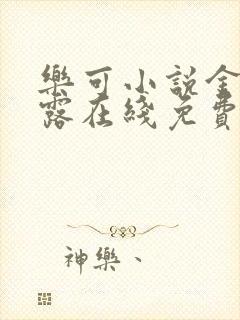 樂可小說全
露在綫免費
神樂、